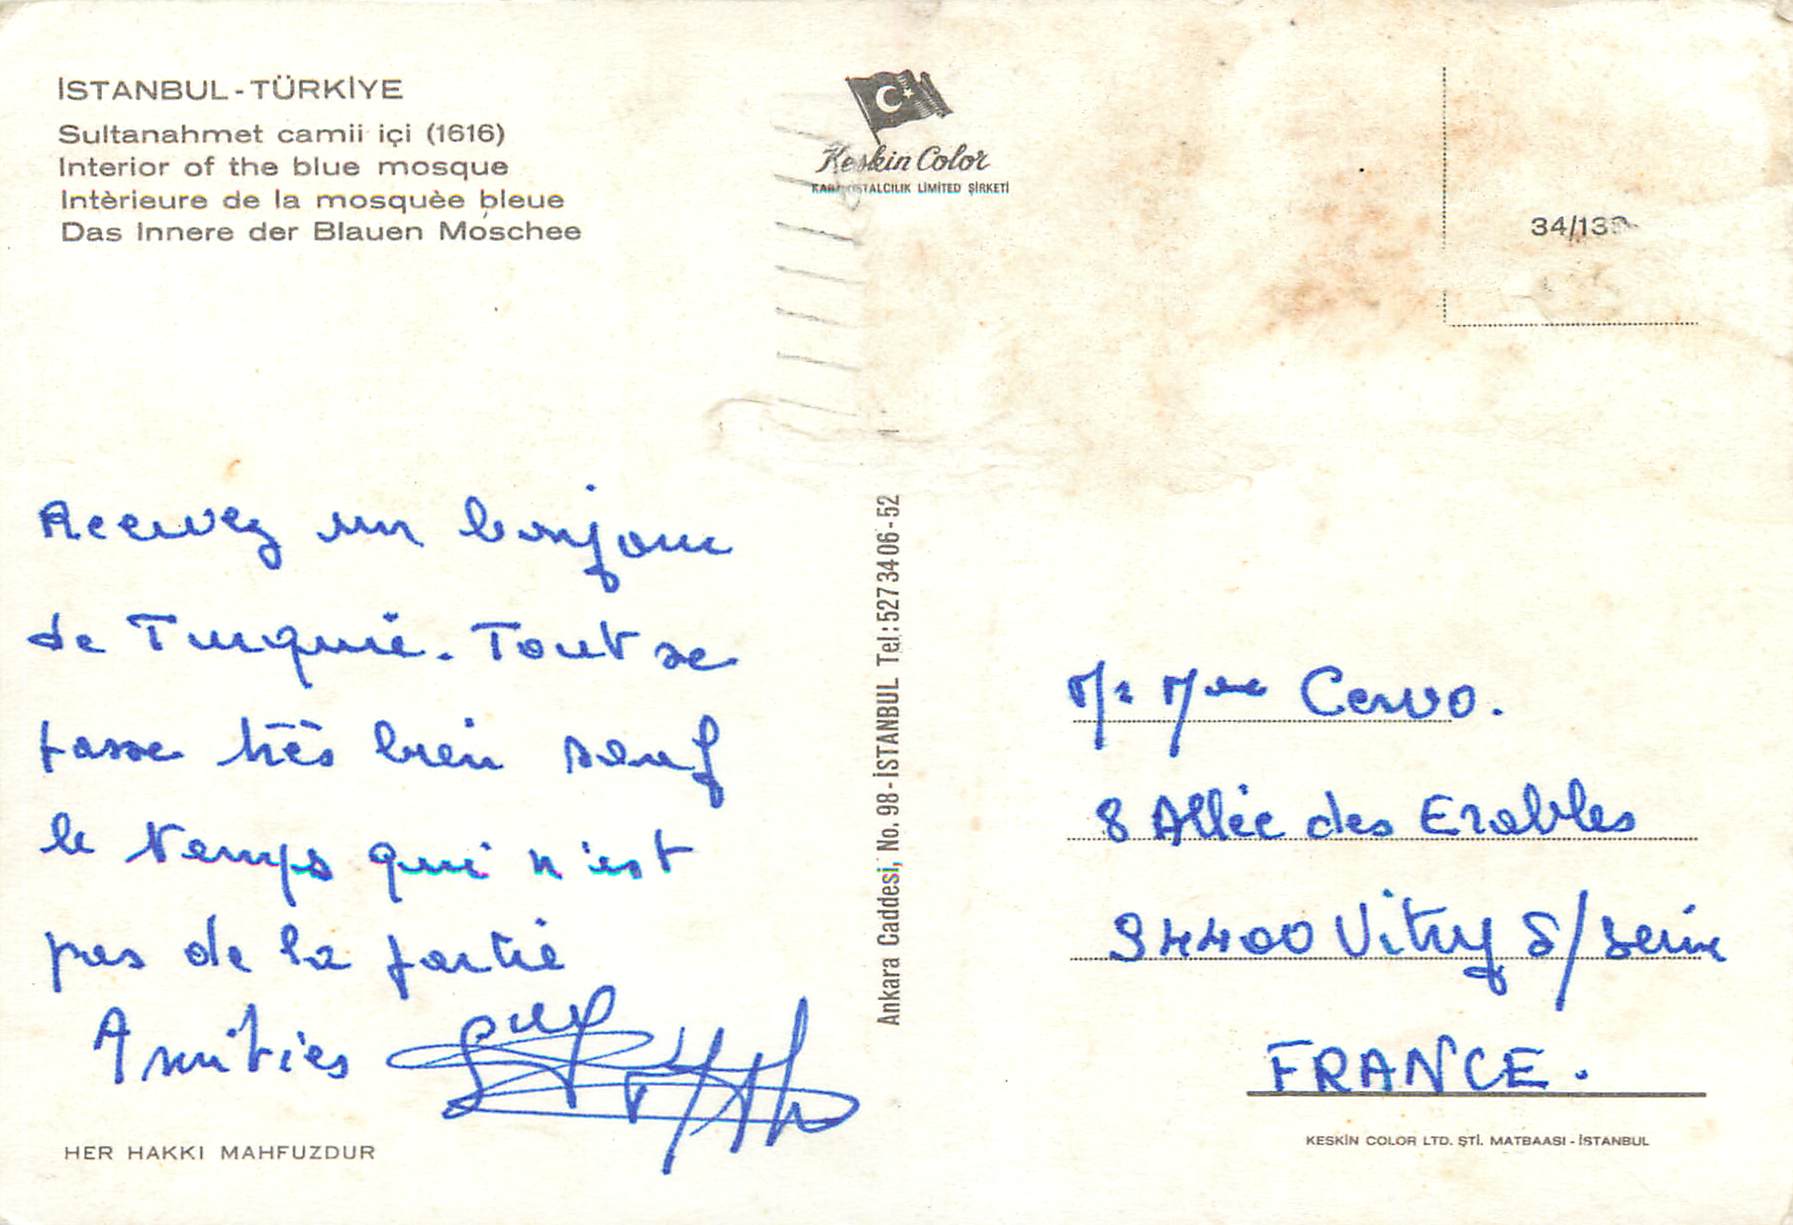 İSTANBUL - TÜRKİYE
Sultanahmet camii içi (1616)
Interior of the blue mosque
Intèrieure de la mosquèe bleue
Das Innere der Blauen Moschee
Keskin Color
LIMİTED ŞİRKETİ
34/13
Recevez un bonjour
de Turquie. Tout se
passe très bien sauf
le temps qui n'est
pas de la partie
Amitiés Guy
HER HAKKI MAHFUZDUR
Ankara Caddesi, No. 98 - İSTANBUL Tel: 527 34 06 - 52
Mr Mme Cervo.
8 Allée des Erables
94400 Vitry S/Seine
FRANCE.
KESKİN COLOR LTD. ŞTİ. MATBAASI - İSTANBUL